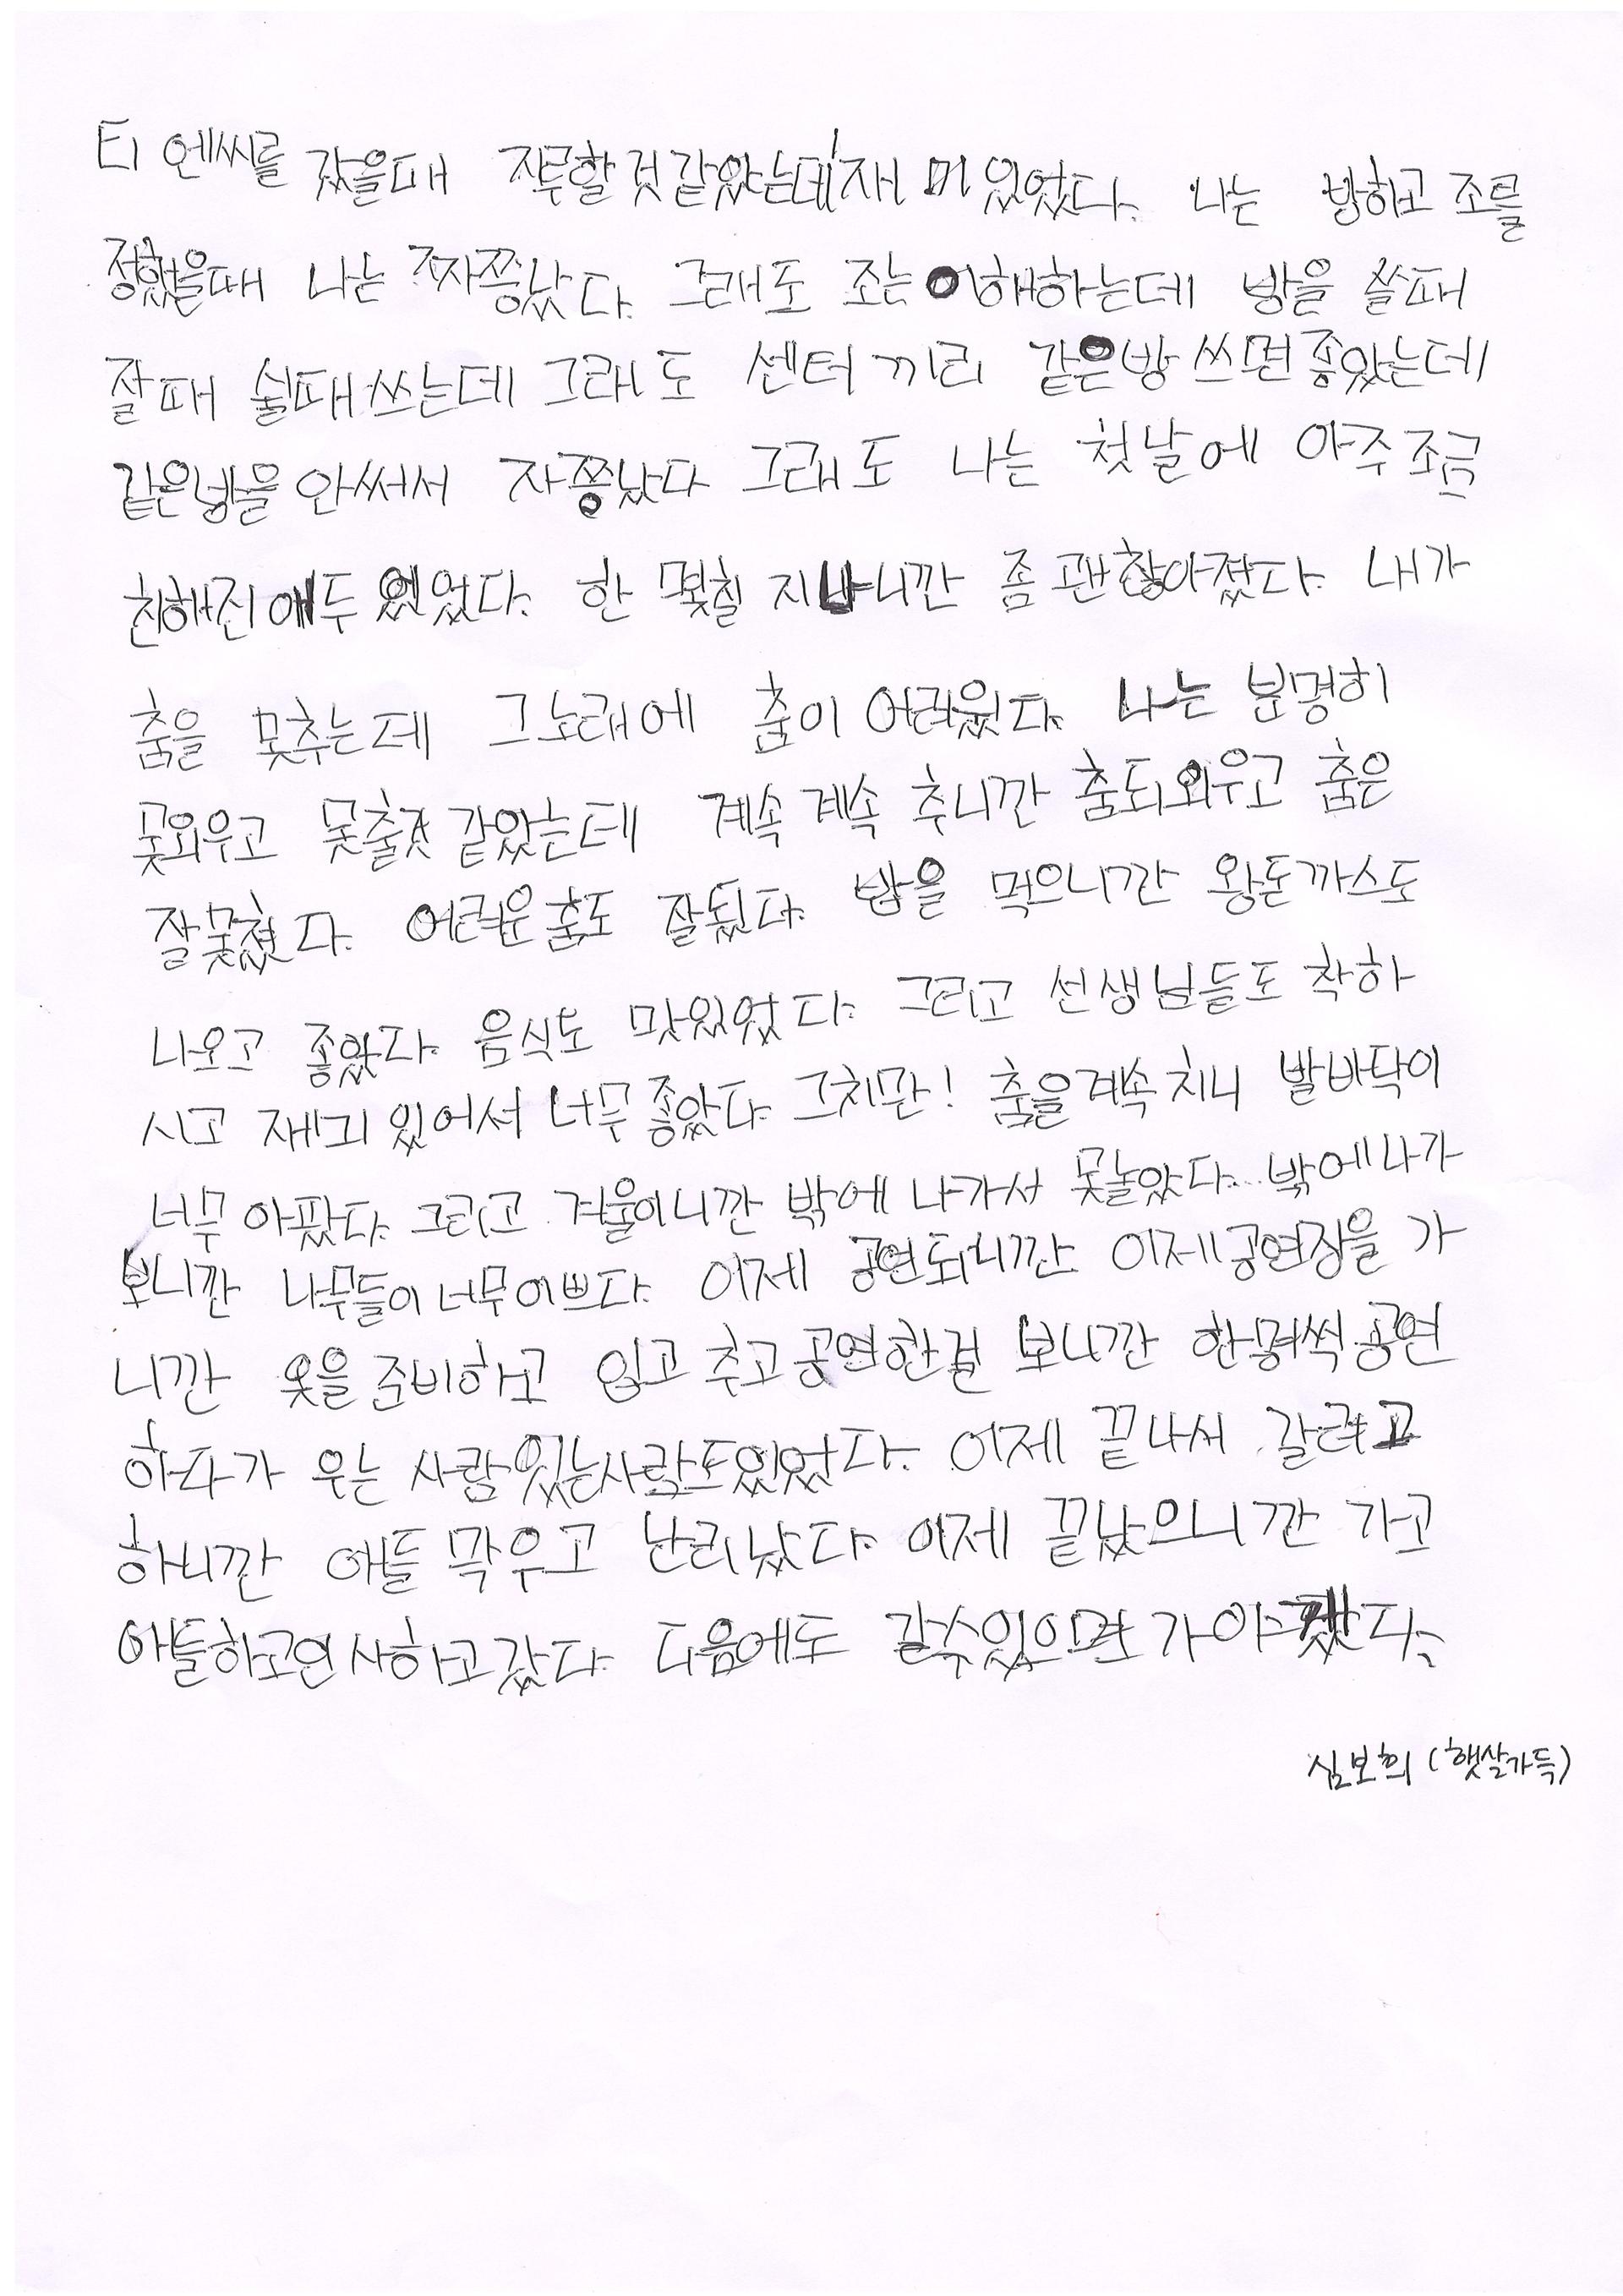 티엔씨를 갔을때 지루할것같았는데 재미있었다. 나는 방하고 조를
정했을때 나는 짜쯩났다. 그래도 조는 이해하는데 방을 쓸때
잘때 쉴때쓰는데 그래도 센터끼리 같은방 쓰면좋았는데
같은방을 안써서 자쯩났다 그래도 나는 첫날에 아주조금
친해진애두 있었다. 한 몇칠 지나니깐 좀괜찮아졌다. 내가
춤을 못추는데 그노래에 춤이 어려웠다. 나는 분명히
못외우고 못출것 같았는데 계속계속 추니깐 춤도외우고 춤은
잘못췄다. 어려운춤도 잘됬다. 밥을 먹으니깐 왕돈까스도
나오고 좋았다. 음식도 맛있었다. 그리고 선생님들도 착하
시고 재미있어서 너무좋았다. 그치만! 춤을계속치니 발바닥이
너무 아팠다. 그리고 겨울이니깐 밖에 나가서 못놀았다. 밖에나가
보니깐 나무들이 너무이쁘다. 이제 공연되니깐 이제공연장을 가
니깐 옷을 준비하고 입고 추고 공연한걸 보니깐 한명씩 공연
하다가 우는 사람있는사람도있었다. 이제 끝나서 갈려고
하니깐 애들 막우고 난리났다. 이제 끝났으니깐 가고
애들하고인사하고갔다. 다음에도 갈수있으면 가야겠다.
심보희 (햇살가득)